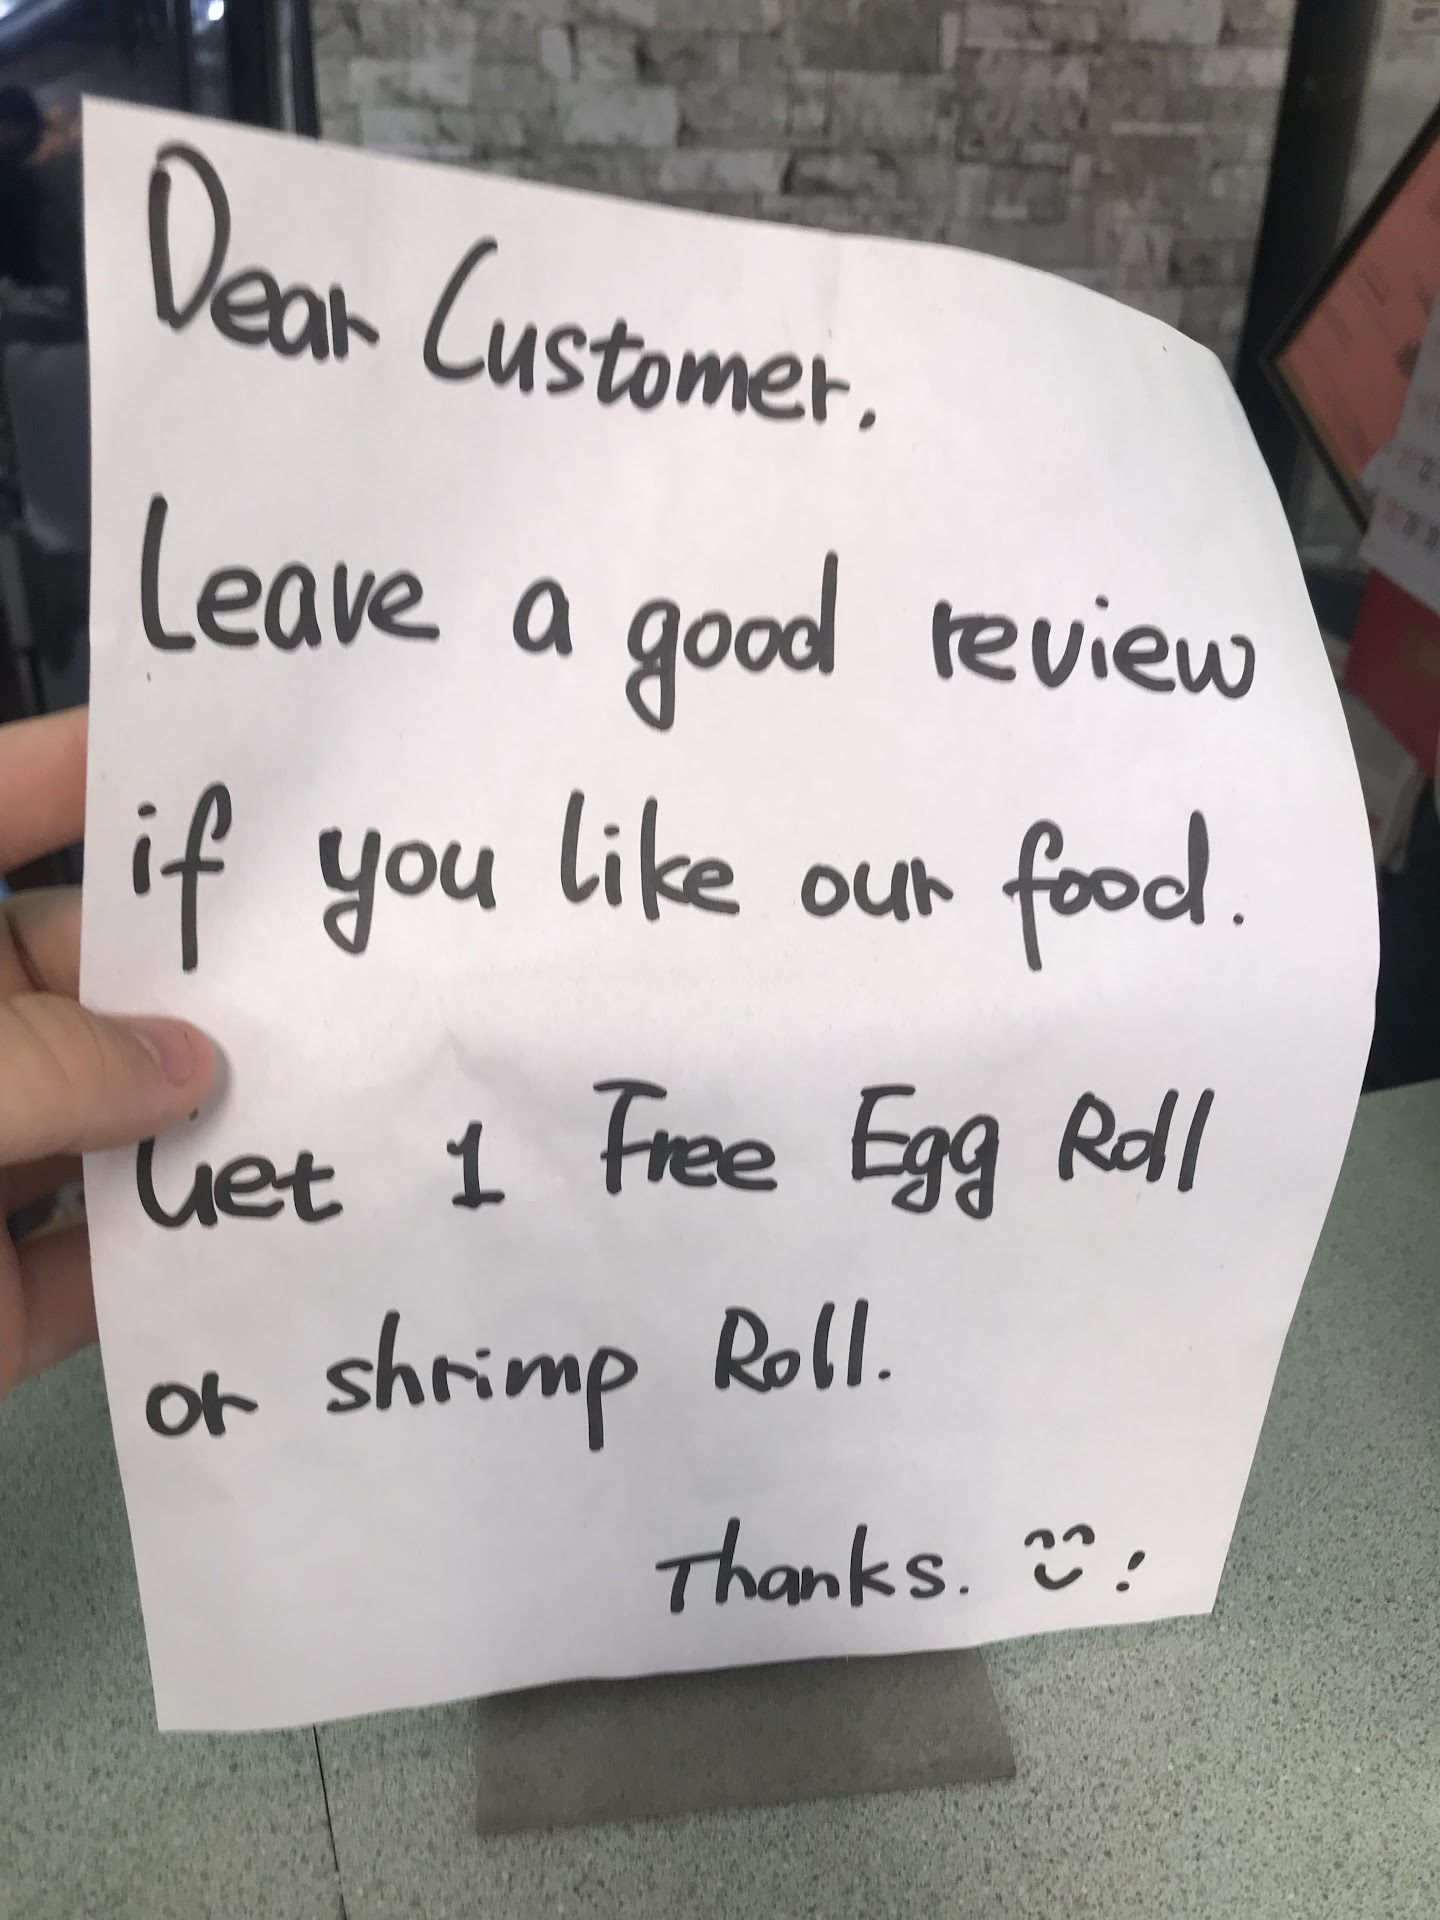 Dear Customer.
Leave a good review
if you like our food.
Get 1 Free Egg Roll
or shrimp Roll.
Thanks. !